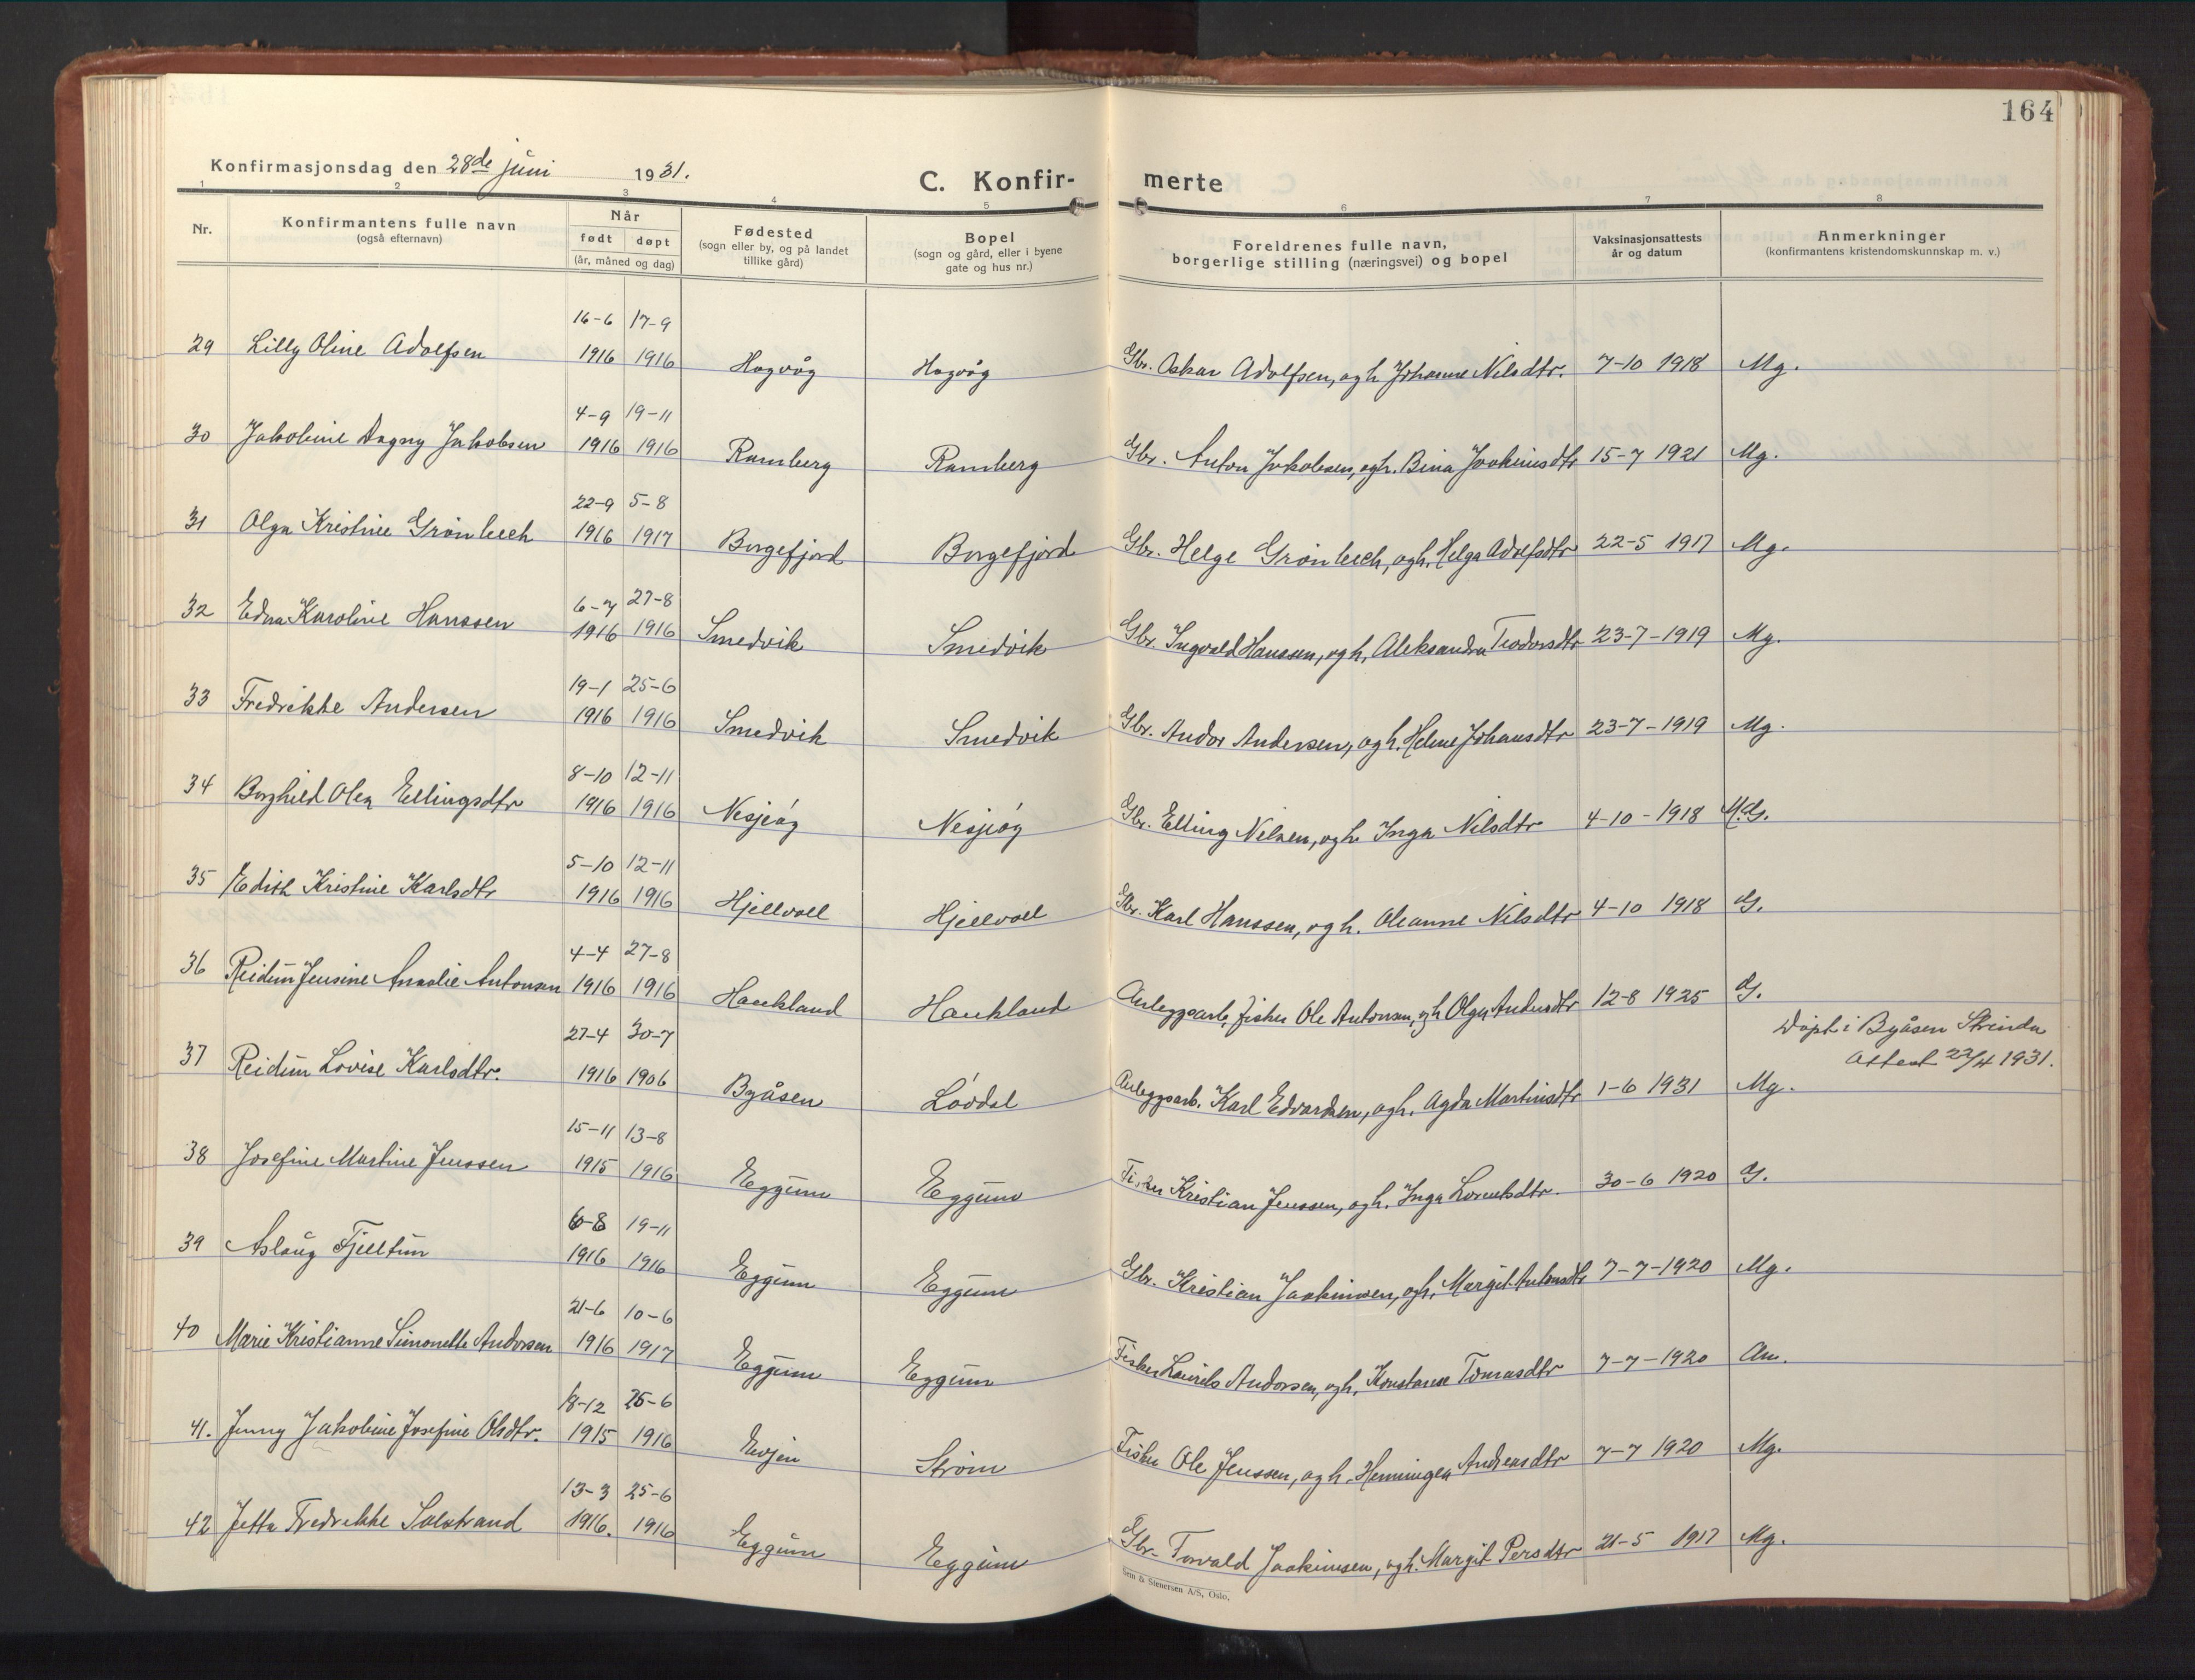 164
Konfirmasjonsdag den 28de juni 1931.
C. Konfir- merte
1 2 3 4 5 6 7 8
Nr.
Konfirmantens fulle navn
(også efternavn)
Når
født døpt
(år, måned og dag)
Fødested
(sogn eller by, og på landet
tillike gård)
Bopel
(sogn og gård, eller i byene
gate og hus nr.)
Foreldrenes fulle navn,
borgerlige stilling (næringsvei) og bopel
Vaksinasjonsattests
år og datum
Anmerkninger
(konfirmantens kristendomskunnskap m. v.)
16-6 17-9
29 Lilly Oline Adolfsen 1916 1916 Hagvåg Hagvåg Gbr. Oskar Adolfsen, ogh Johanne Nilsdtr. 7-10 1918 Mg.
4-9 19-11
30 Jakobine Dagny Jakobsen 1916 1916 Ramberg Ramberg Gbr. Anton Jakobsen, ogh. Bina Joakimsdtr 15-7 1921 Mg.
22-9 5-8
31 Olga Kristine Grønbech 1916 1917 Borgefjord Borgefjord Gbr. Helge Grønbech, ogh. Helga Adolfsdtr 22-5 1917 Mg.
6-7 27-8
32 Edna Karoline Hanssen 1916 1916 Smedvik Smedvik Gbr. Ingvald Hanssen, ogh. Aleksandra Teodorsdtr 23-7-1919 Mg.
19-1 25-6
33 Fredrikke Andersen 1916 1916 Smedvik Smedvik Gbr. Andor Andersen, ogh. Helene Johansdtr 23-7-1919 Mg.
8-10 12-11
34 Borghild Olea Ellingsdtr 1916 1916 Nesjeåg Nesjeåg Gbr. Elling Nilsen, ogh Inga Nilsdtr 4-10-1918 M.G.
5-10 12-11
35 Edith Kristine Karlsdtr 1916 1916 Hjellvoll Hjellvoll Gbr. Karl Hanssen, ogh. Oleanne Nilsdtr 4-10 1918 G.
4-4 27-8
36 Reidun Jensine Amalie Antonsen 1916 1916 Haukland Haukland Anleggsarb, fisker Ole Antonsen, ogh Olga Andersdtr 12-8 1925 G.
Døpt i Byåsen Strinda
Attest 22/4 1931.
27-4 30-7
37 Reidun Lovise Karlsdtr. 1916 1906 Byåsen Lövdal Anleggsarb. Karl Edvardsen, ogh. Agda Martinsdtr 1-6 1931 Mg.
15-11 13-8
38 Josefine Martine Jenssen 1915 1916 Eggum Eggum Fisker Kristian Jenssen, ogh. Inga Lorentsdtr. 30-6 1920 G.
6-8 19-11
39 Aslaug Fjelltun 1916 1916 Eggum Eggum Gbr. Kristian Joakimsen, ogh. Margit Antonsdtr 7-7-1920 Mg.
21-6 10-6
40 Marie Kristianne Simonette Andorsen 1916 1917 Eggum Eggum Fisker Laurits Andorsen, ogh. Konstanse Tomasdtr 7-7-1920 Am.
18-12 25-6
41. Jenny Jakobine Josefine Olsdtr. 1915 1916 Evjen Strøm Fisker Ole Jenssen, ogh. Henningea Andreasdtr 7-7 1920 Mg.
13-3 25-6
42 Jetta Fredrikke Solstrand 1916. 1916 Eggum Eggum Gbr. Torvald Joakimsen, ogh. Margit Persdtr 21-5 1917 Mg.
Sem & Stenersen A/S, Oslo.